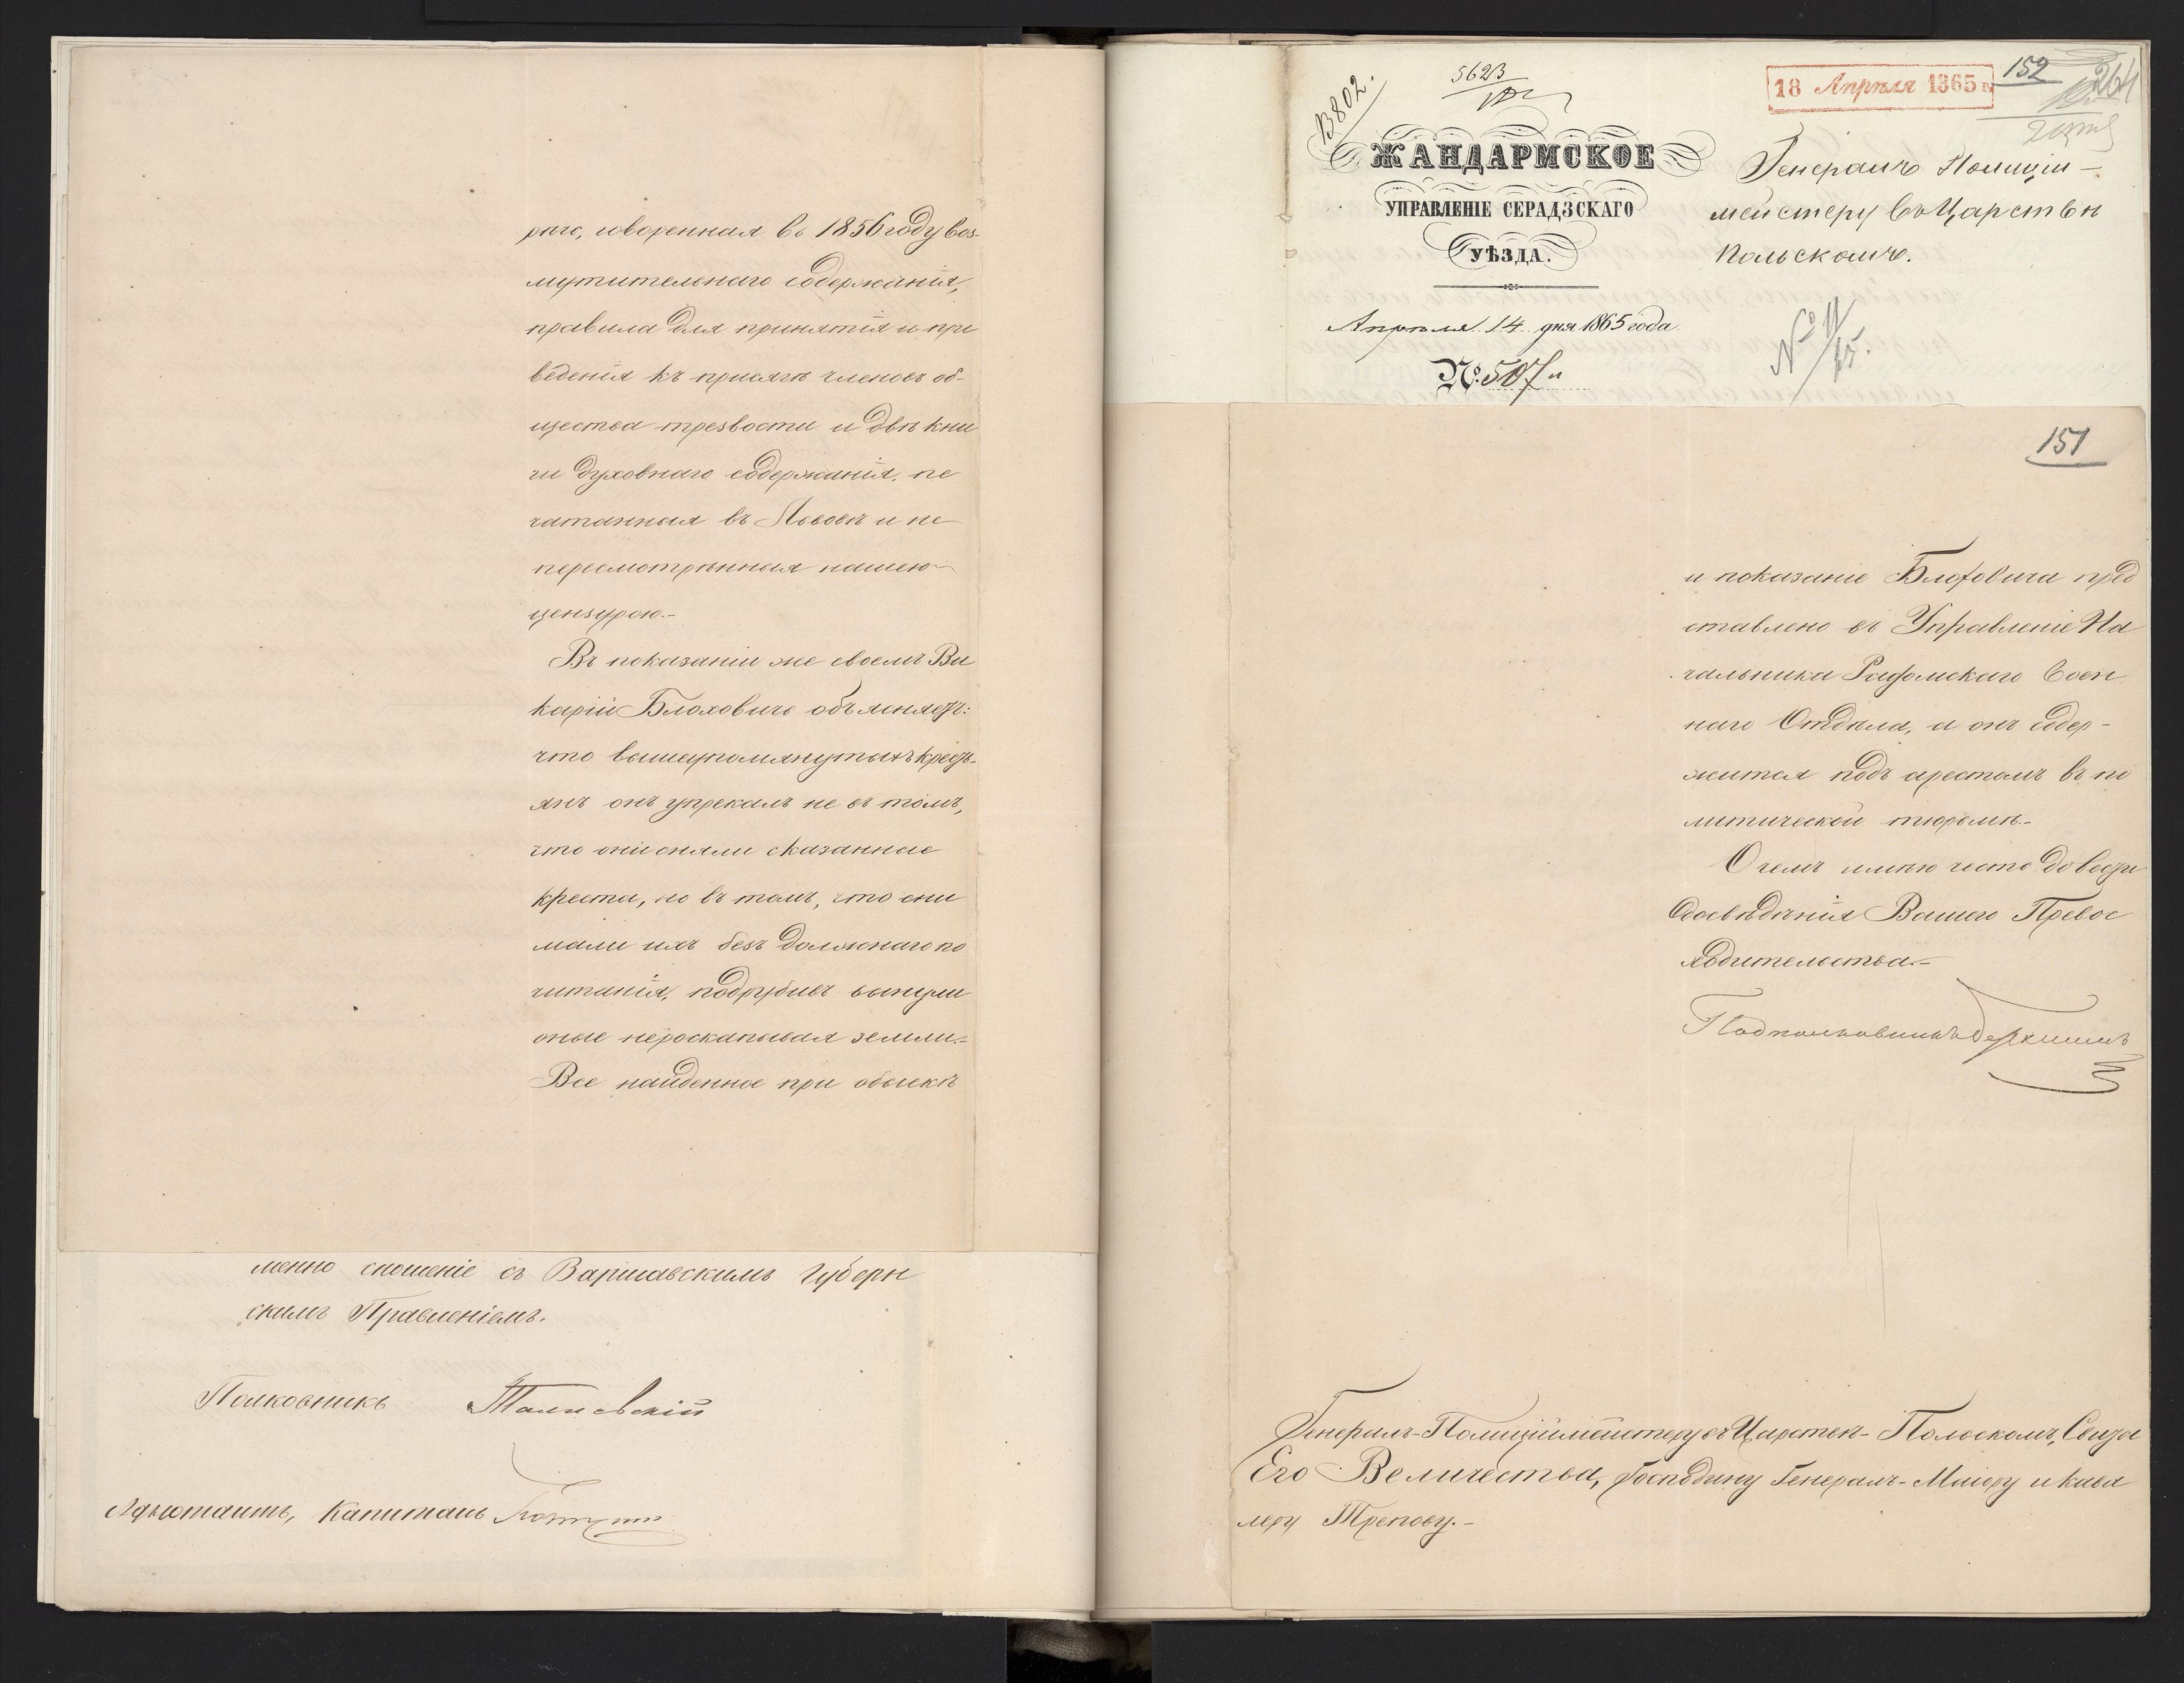 рого, говоренная въ 1856 году воз-
мутительнаго содержанія,
правила для принятія и при
веденія къ присягѣ членовъ об-
щества трезвости и двѣ кни
ги духовнаго содержанія, пе
чатанныя въ Львовѣ и не
пересмотрѣнныя нашею
цензурою.-
Въ показаніи же своемъ Ви
карій Блоховичъ объясняетъ:
что вышеупомянутыхъ кресть-
янъ онъ упрекалъ не въ томъ,
что они сняли сказанные
креста, но въ томъ, что сни
мали ихъ безъ должнаго по
читанія, подрубивъ вынули
оные нероскапывая земли.-
Все найденное при обыскѣ
менно сношеніе съ Варшавскимъ Губерн
скимъ Правленіемъ.
Полковникъ
Адъютантъ, Капитанъ
5623
13802.
18 Апрѣля 1865 г.
152
264
ЖАНДАРМСКОЕ
УПРАВЛЕНІЕ СЕРАДЗСКАГО
УѢЗДА.
Апрѣля 14 дня 1865 года
№ 507
Генералъ Полиціи-
мейстеру въ Царствѣ
Польскомъ.
№ 11/65.
151
и показаніе Блоховича пред
ставлено въ Управленіе На
чальника Радомскаго Воен
наго Отдѣла, а онъ содер-
жится подъ арестомъ въ по
литической тюрьмѣ.-
О чемъ имѣю честь довести
до свѣдѣнія Вашего Превос
ходительства.-
Подполковникъ
Генералъ-Полиціймейстеру въ Царствѣ Польскомъ, Свиты
Его Величества, Господину Генералъ-Маіору и Кава
леру Трепову.-